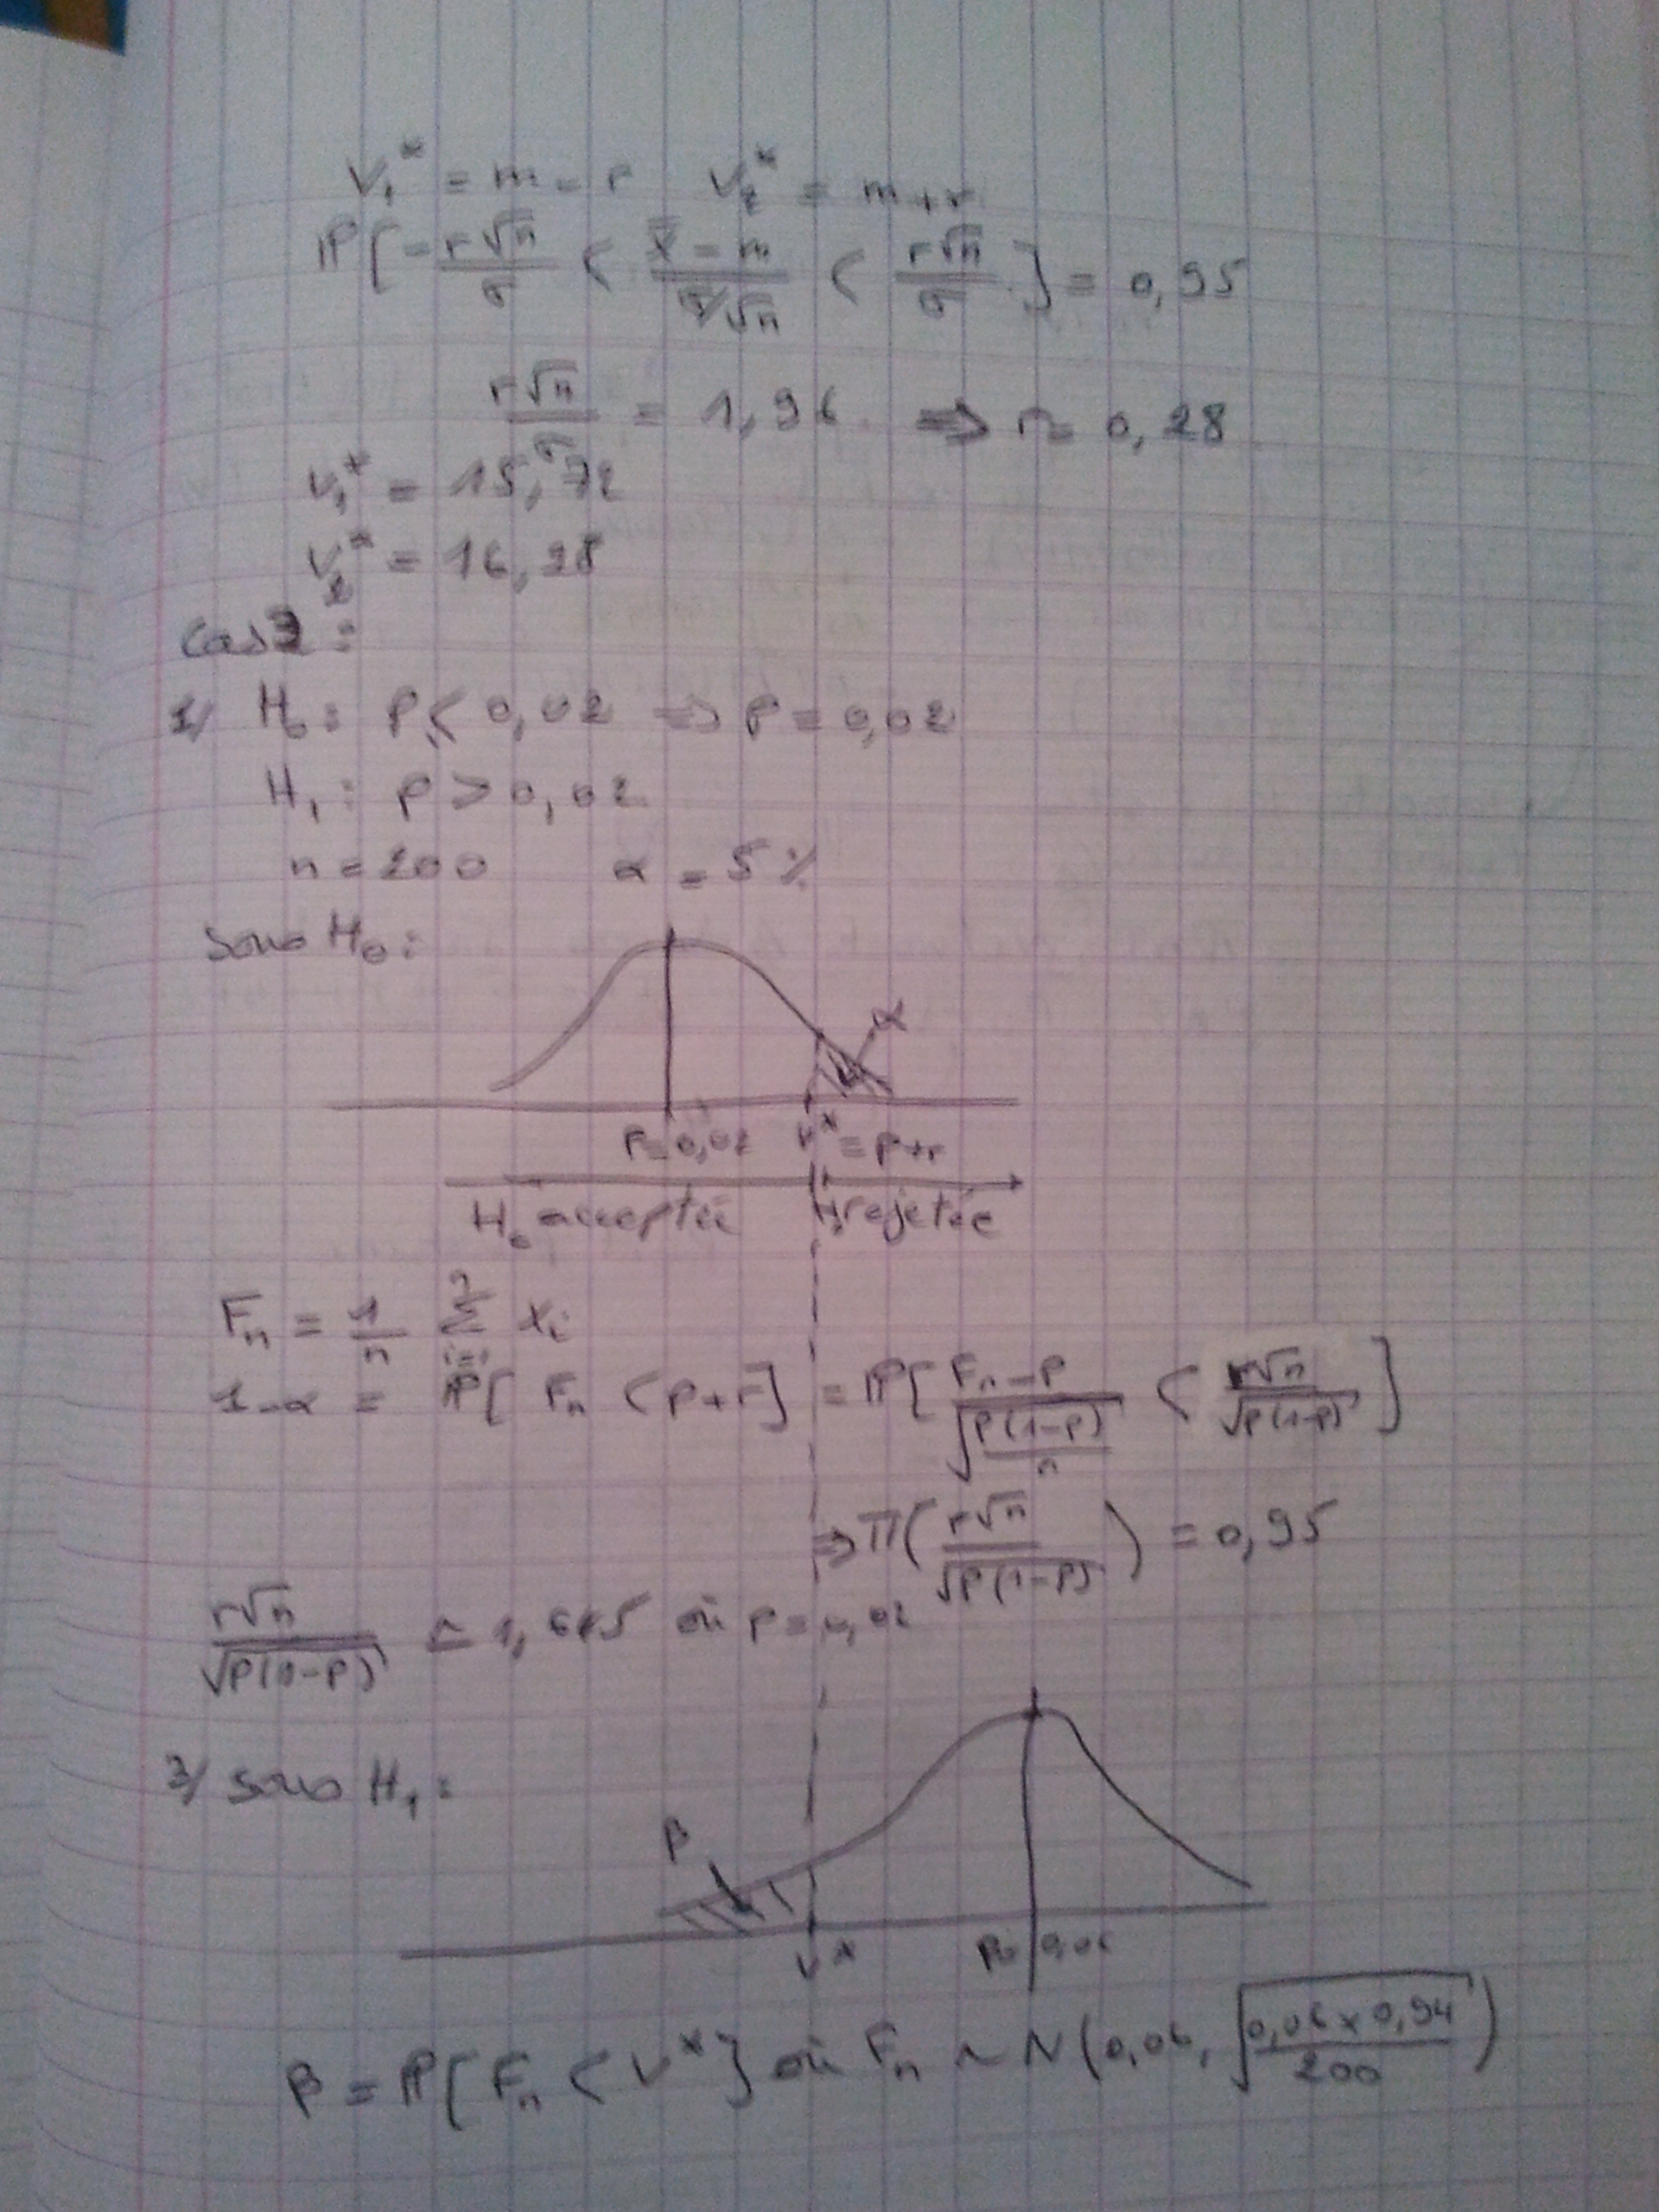 V₁* = m - r   V₂* = m + r
ℙ[-r√n/σ < (X̄ - m)/(σ/√n) < r√n/σ] = 0,95
r√n/σ = 1,96 ⇒ r ≃ 0,28
V₁* = 15,72
V₂* = 16,28
Cas 2 :
1/ H₀ : P ≤ 0,02 ⇒ P = 0,02
H₁ : P > 0,02
n = 200   α = 5 %
Sous H₀ :
α
P = 0,02   V* = P + r
H₀ acceptée   H₀ rejetée
Fₙ = 1/n Σᵢ₌₁ⁿ Xᵢ
1 - α = ℙ[Fₙ < P + r] = ℙ[(Fₙ - P)/√(P(1-P)/n) < r√n/√(P(1-P))]
⇒ π(r√n/√(P(1-P))) = 0,95
r√n/√(P(1-P)) ≃ 1,645 où P = 0,02
3/ Sous H₁ :
β
V*   P = 0,06
β = ℙ[Fₙ < V*] où Fₙ ~ N(0,06, √(0,06 × 0,94/200))